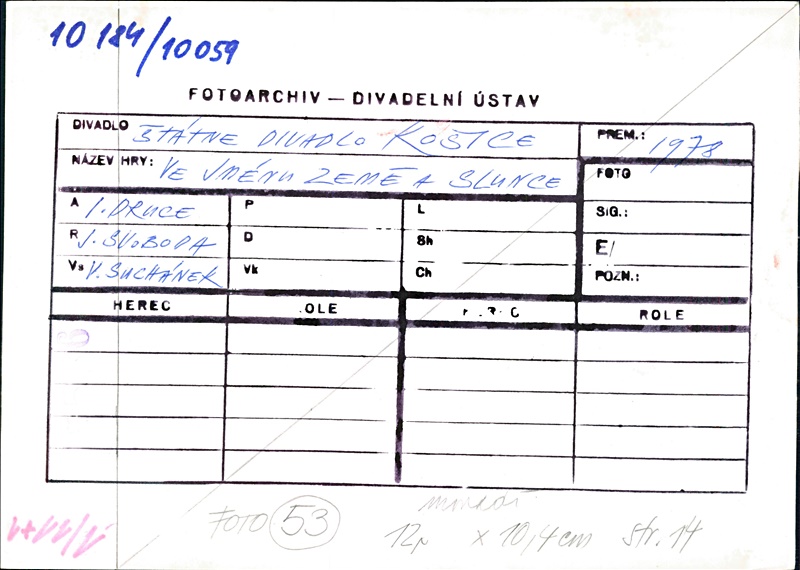 10 184/10 059
FOTOARCHIV — DIVADELNÍ ÚSTAV
DIVADLO ŠTÁTNE DIVADLO KOŠICE PREM.: 1978
NÁZEV HRY: VE JMÉNU ZEMĚ A SLUNCE FOTO
A I. DRUCE P L SIG.:
R J. SVOBODA D Sh E/
Vs V. SUCHÁNEK Vk Ch POZN.:
HEREC OLE ROLE
FOTO 53
12 x 10,4 cm str. 14